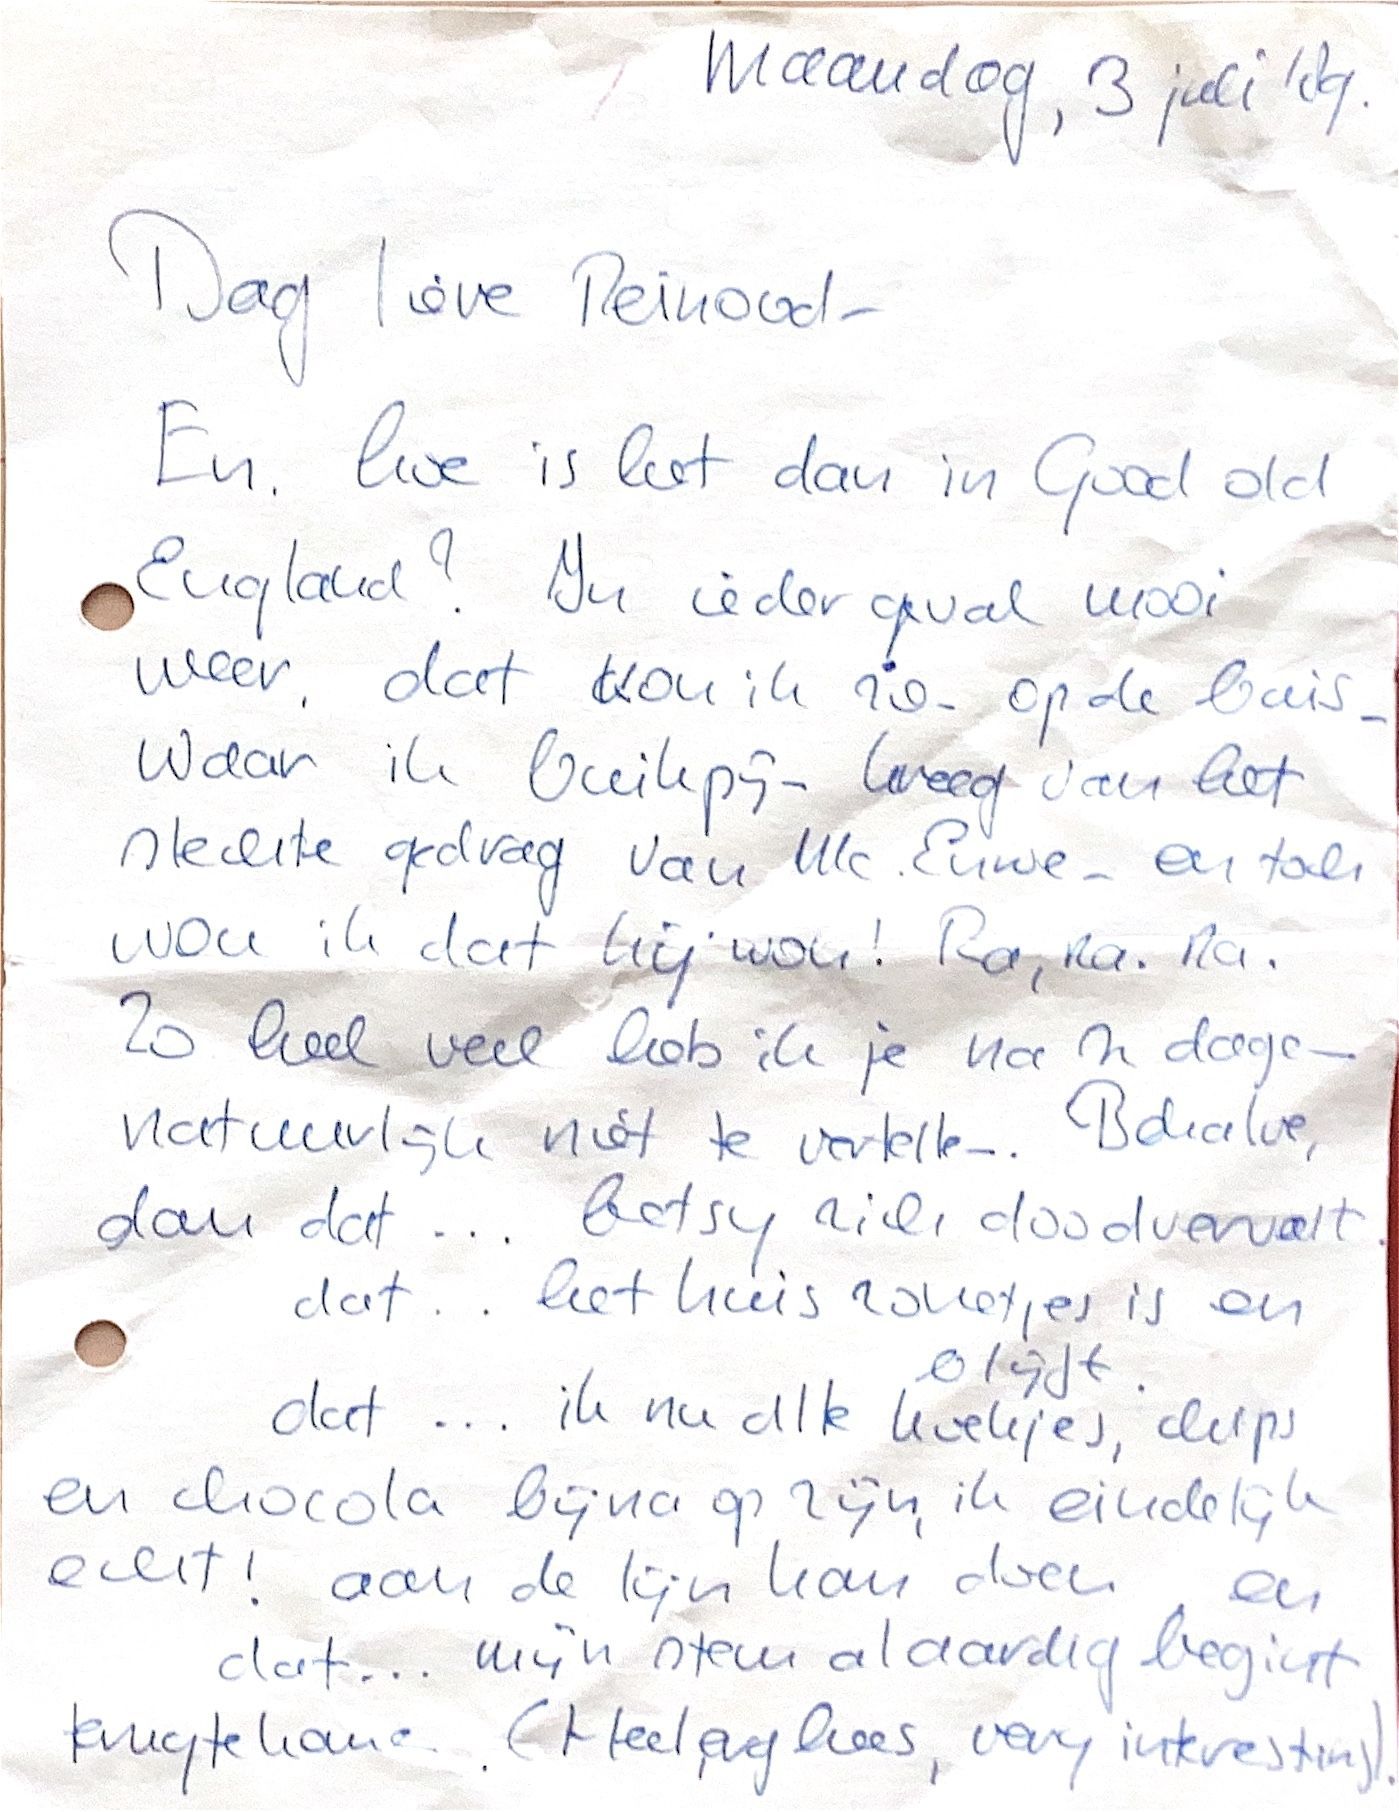 Maandag, 3 juli '89.
Dag lieve Reinoud-
En, hoe is het dan in Good old
England? In ieder geval mooi
weer, dat kon ik zien op de buis-
Waar ik buikpijn kreeg van het
slechte gedrag van Mc. Enroe - en toch
wou ik dat hij won! Ra, Ra. Ra.
Zo heel veel heb ik je na 2 dagen
natuurlijk niet te vertellen. Behalve,
dan dat ... Betsy zich doodverveelt.
dat .. het huis zonnetjes is en
blijft.
dat ... ik nu alle koekjes, chips
en chocola bijna op zijn, ik eindelijk
echt! aan de lijn kan doen en
dat... mijn stem al aardig begint
terug te komen. (Heel erg hees, very interesting).